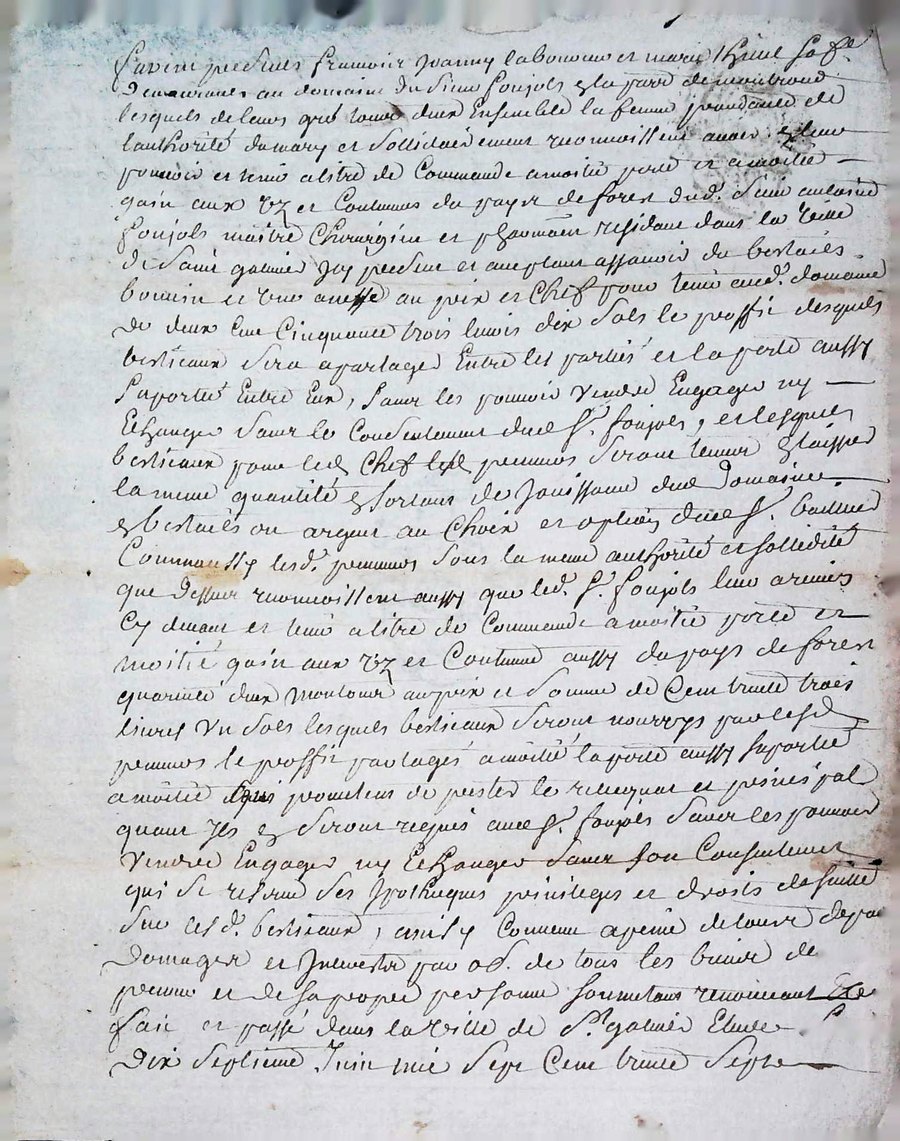 furent presents francois Joanny laboureur et marie thiven sa fe.
demeurants au domaine du sieur foujols en la parr de montrond
lesquels de leurs gré tous deux Ensemble la femme procedante de
l'authorité du mary et sollidairement reconnoissent avoir et leur
pouvoir et tenir a titre de Commande a moitié perte et a moitié
gain aux uz et Coutumes du payx de forex dud. sieur antoine
foujols maitre Chirurgien et pharmacien residant dans la ville
de saint galmier Icy present et acceptant assavoir du bestails
bouvin et une anesse au prix et Chef pour tenir aud. domaine
de deux Cent Cinquante trois livres dix sols le proffit desquels
bestieaux sera a partager Entre les parties et la perte aussy
suportée Entre Eux, sans les pouvoir vendre Engager ny
Echanger sans le Consentement dud sr. foujols, et lesquels
bestieaux pour led Chef lesd preneurs seront tenus en laisser
la meme quantité en sortant de Jouissance dud Domaine
en bestails ou argent au Choix et option dud sr. bailleur
Comm aussy lesd. preneurs sous la meme authorité et sollidité
que dessus reconnoissent aussy que led. sr. foujols leur a remis
Cy devant et tenir a titre de Commande a moitié perte et
moitié gain aux uz et Coutume aussy du pays de forex
quarente deux moutons au prix et somme de Cent trente trois
livres un sols lesquels bestieaux seront nourrys par lesd
preneurs le proffit partagés a moitié la perte aussy suportée
a moitié prometens de prester le relequat et principal
quant Ils en seront requis aud sr. foujols sans les pouvoir
vendre Engager ny Echanger sans son Consentement
qui se reserve ses Ipotheques privileges et droits de suitte
sur lesd. bestieaux, ainsy Convenu a peine de tous depan
Domages et Interestz par ob. de tous les biens de
preneur et de sa propre personne soumetans renoncant
fait et passé dans la ville de st. galmier Etude
dix septieme Juin mil sept Cent trente sept